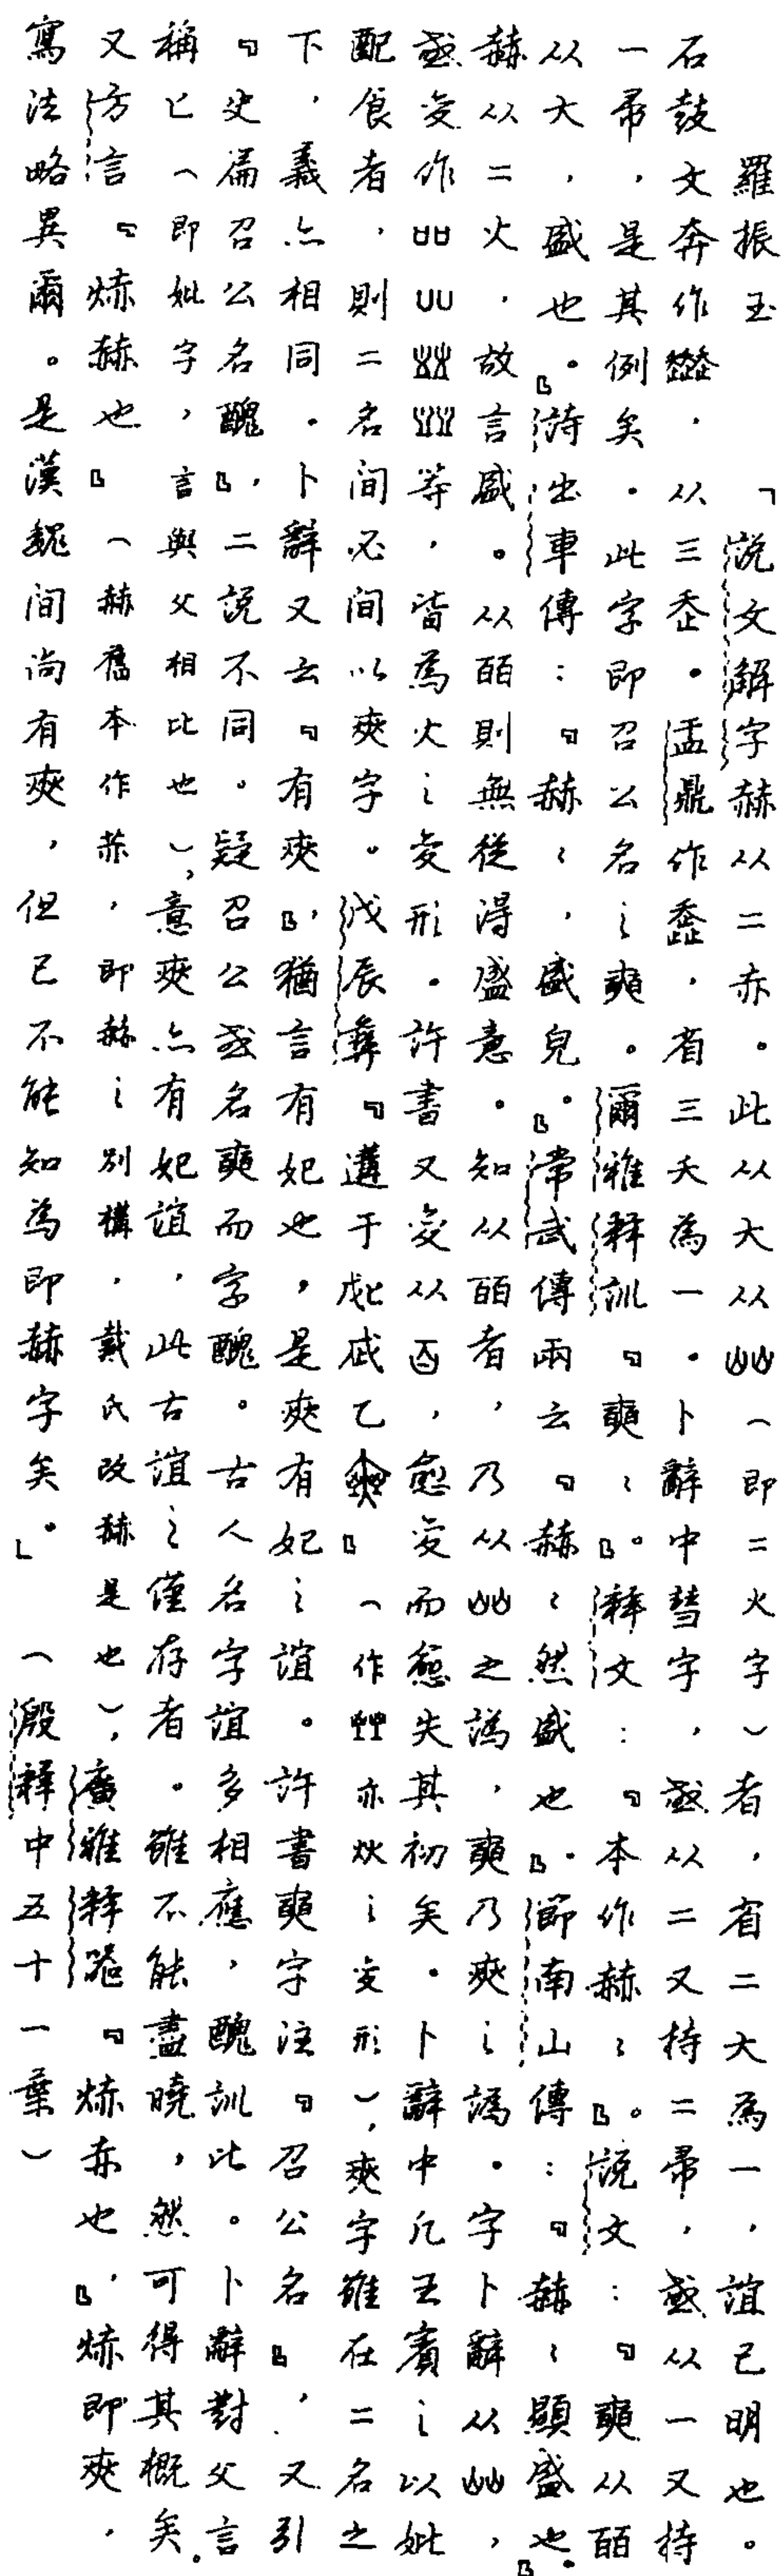 羅振玉　「說文解字赫从二赤。此从大从(即二火字)者，省二大為一，誼已明也。
石鼓文奔作，从三。盂鼎作，省三夭為一。卜辭中彗字，或从二又持二帚，或从一又持
一帚，是其例矣。此字即召公名之奭。爾雅釋訓『奭〻』。釋文：『本作赫〻』。說文：『奭从皕
从大，盛也。』詩出車傳：『赫〻，盛皃。』常武傳兩云『赫〻然盛也』。節南山傳：『赫〻顯盛也。』
赫从二火，故言盛。从皕則無從得盛意。知从皕者，乃从之譌，奭乃㚘之譌。字卜辭从，
或變作等，皆為火之變形。許書又變从，愈變而愈失其初矣。卜辭中凡王賓之以妣
配食者，則二名間必間以㚘字。戊辰彝『遘于妣戊武乙』(作亦炏之變形)，㚘字雖在二名之
下，義亦相同。卜辭又云『有㚘』，猶言有妃也，是㚘有妃之誼。許書奭字注『召公名』，又引
『史篇召公名醜』，二說不同。疑召公或名奭而字醜。古人名字誼多相應，醜訓比。卜辭對父言
稱匕(即妣字，言與父相比也)，意㚘亦有妃誼，此古誼之僅存者。雖不能盡曉，然可得其概矣。
又方言『焃赫也』(赫舊本作，即赫之別構，戴氏改赫是也)，廣雅釋器『焃赤也』，焃即㚘，
寫法略異爾。是漢魏間尚有㚘，但已不能知為即赫字矣。」　(殷釋中五十一葉)